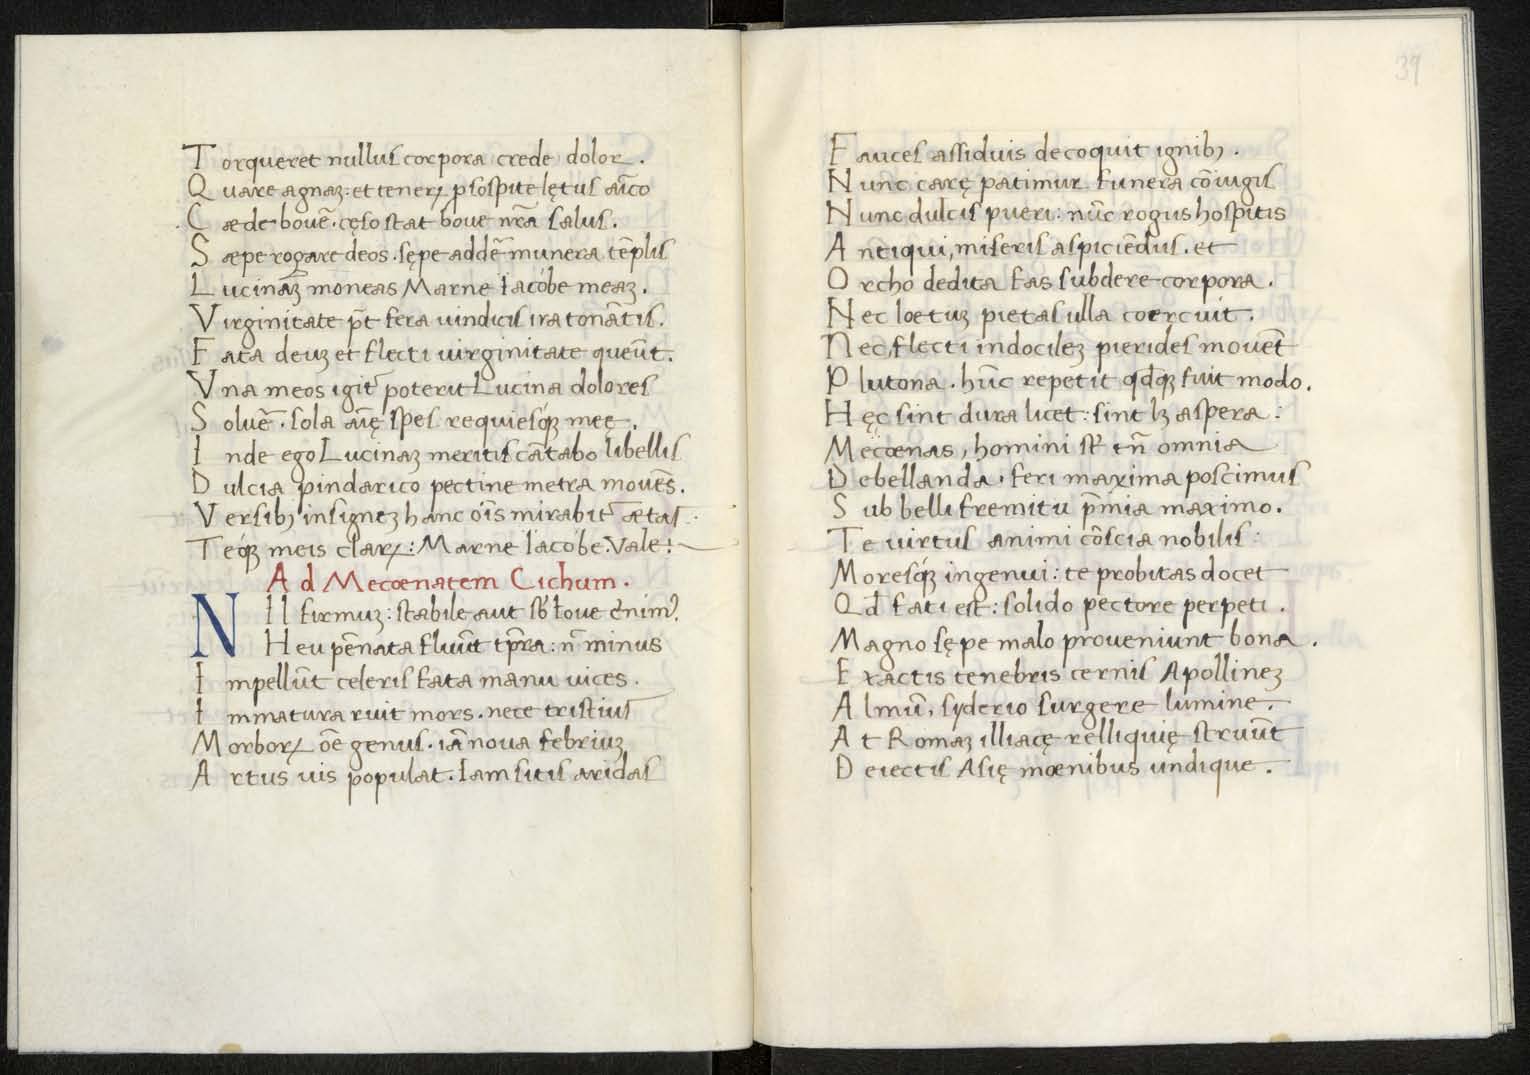 Torqueret nullus corpora crede dolor.
Quare agnaꝫ: et tenerꝝ ꝑ sospite lętus aĩco
Cæde bouẽ. cęso stat boue nr̃a salus.
Sæpe rogare deos. sępe addẽ munera tẽplis
Lucinaꝫ moneas Marne Iacobe meaꝫ.
Virginitate pr̃t fera uindicis ira tonãtis.
Fata deuꝫ et flecti uirginitate queũt.
Vna meos igit᷑ poterit Lucina dolores
Soluẽ. sola aĩę spes requiesqꝫ meę.
Inde ego Lucinaꝫ meritis cãtabo libellis
Dulcia pindarico pectine metra mouẽs.
Versibꝫ insigneꝫ hanc oĩs mirabit᷑ ætas.
Teqꝫ meis clarꝝ: Marne Iacobe: Vale:
Ad Mecœnatem Cichum.
NIl firmuꝫ: stabile aut sb̃ Ioue cernim᷒.
Heu pẽnata fluũt tp̃ra: nõ minus
Impellũt celeris fata manu uices.
Immatura ruit mors. nece tristius
Morborꝝ oẽ genus. iã noua febriuꝫ
Artus uis populat. Iam sitis aridas
39
Fauces assiduis decoquit ignibꝫ.
Nunc carę patimur funera cõiugis
Nunc dulcis pueri: nũc rogus hospitis
Antiqui, miseris aspiciẽdus. et
Orcho dedita fas subdere corpora.
Nec loetuꝫ pietas ulla coercuit.
Nec flecti indocileꝫ pierides mouẽt
Plutona. hũc repetit qd̃qꝫ fuit modo.
Hęc sint dura licet: sint lꝫ aspera:
Mecœnas, homini st̃ tñ omnia
Debellanda. feri maxima poscimus
Sub belli fremitu p̃mia maximo.
Te uirtus animi cõscia nobilis:
Moresqꝫ ingenui: te probitas docet
Qd̃ fati est: solido pectore perpeti.
Magno sępe malo proueniunt bona.
Exactis tenebris cernis Apollineꝫ
Almũ, syderio surgere lumine.
At Romaꝫ illiacę relliquię struũt
Deiectis Asię mœnibus undique.